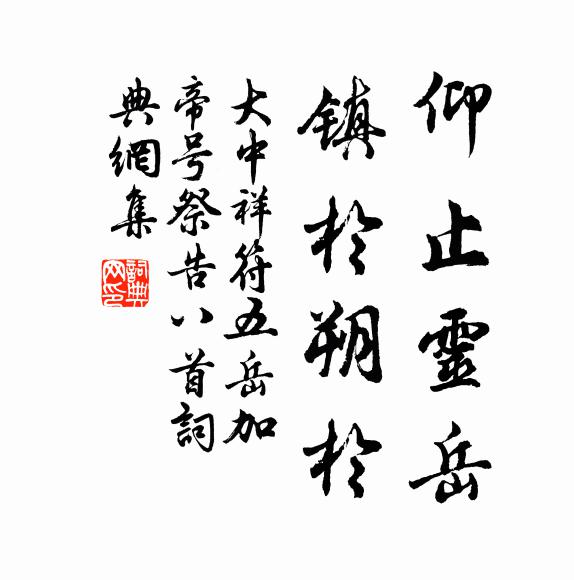 仰止靈岳
镇於朔於
大中祥符五岳加
帝号祭告八首詞
典網集
詞典网印